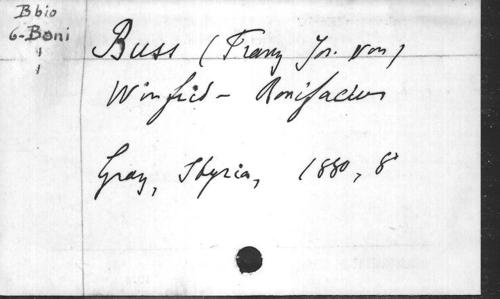 B bio
6-Boni
Buss (Franz Jos. von)
Winfrid - Bonifacius
Graz, Styria, 1880, 8°